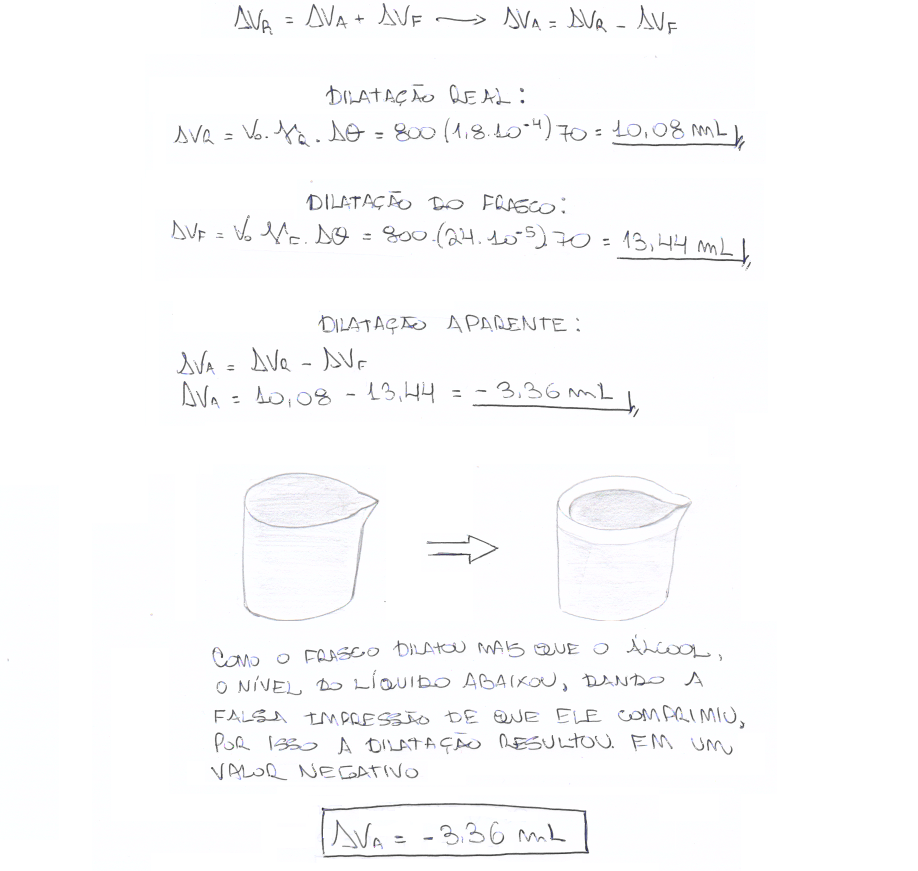 ΔV_R = ΔV_A + ΔV_F → ΔV_A = ΔV_R - ΔV_F
DILATAÇÃO REAL:
ΔV_R = V₀ . γ_R . Δθ = 800 (1,8.10⁻⁴) 70 = 10,08 mL
DILATAÇÃO DO FRASCO:
ΔV_F = V₀ γ_F . Δθ = 800.(24.10⁻⁵) 70 = 13,44 mL
DILATAÇÃO APARENTE:
ΔV_A = ΔV_R - ΔV_F
ΔV_A = 10,08 - 13,44 = -3,36 mL
COMO O FRASCO DILATOU MAIS QUE O ÁLCOOL,
O NÍVEL DO LÍQUIDO ABAIXOU, DANDO A
FALSA IMPRESSÃO DE QUE ELE COMPRIMIU,
POR ISSO A DILATAÇÃO RESULTOU EM UM
VALOR NEGATIVO
ΔV_A = -3,36 mL